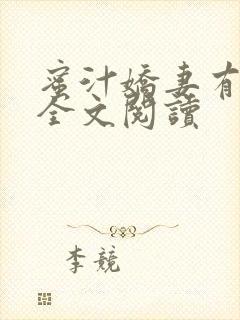 蜜汁嬌妻有
全文閱讀
李競